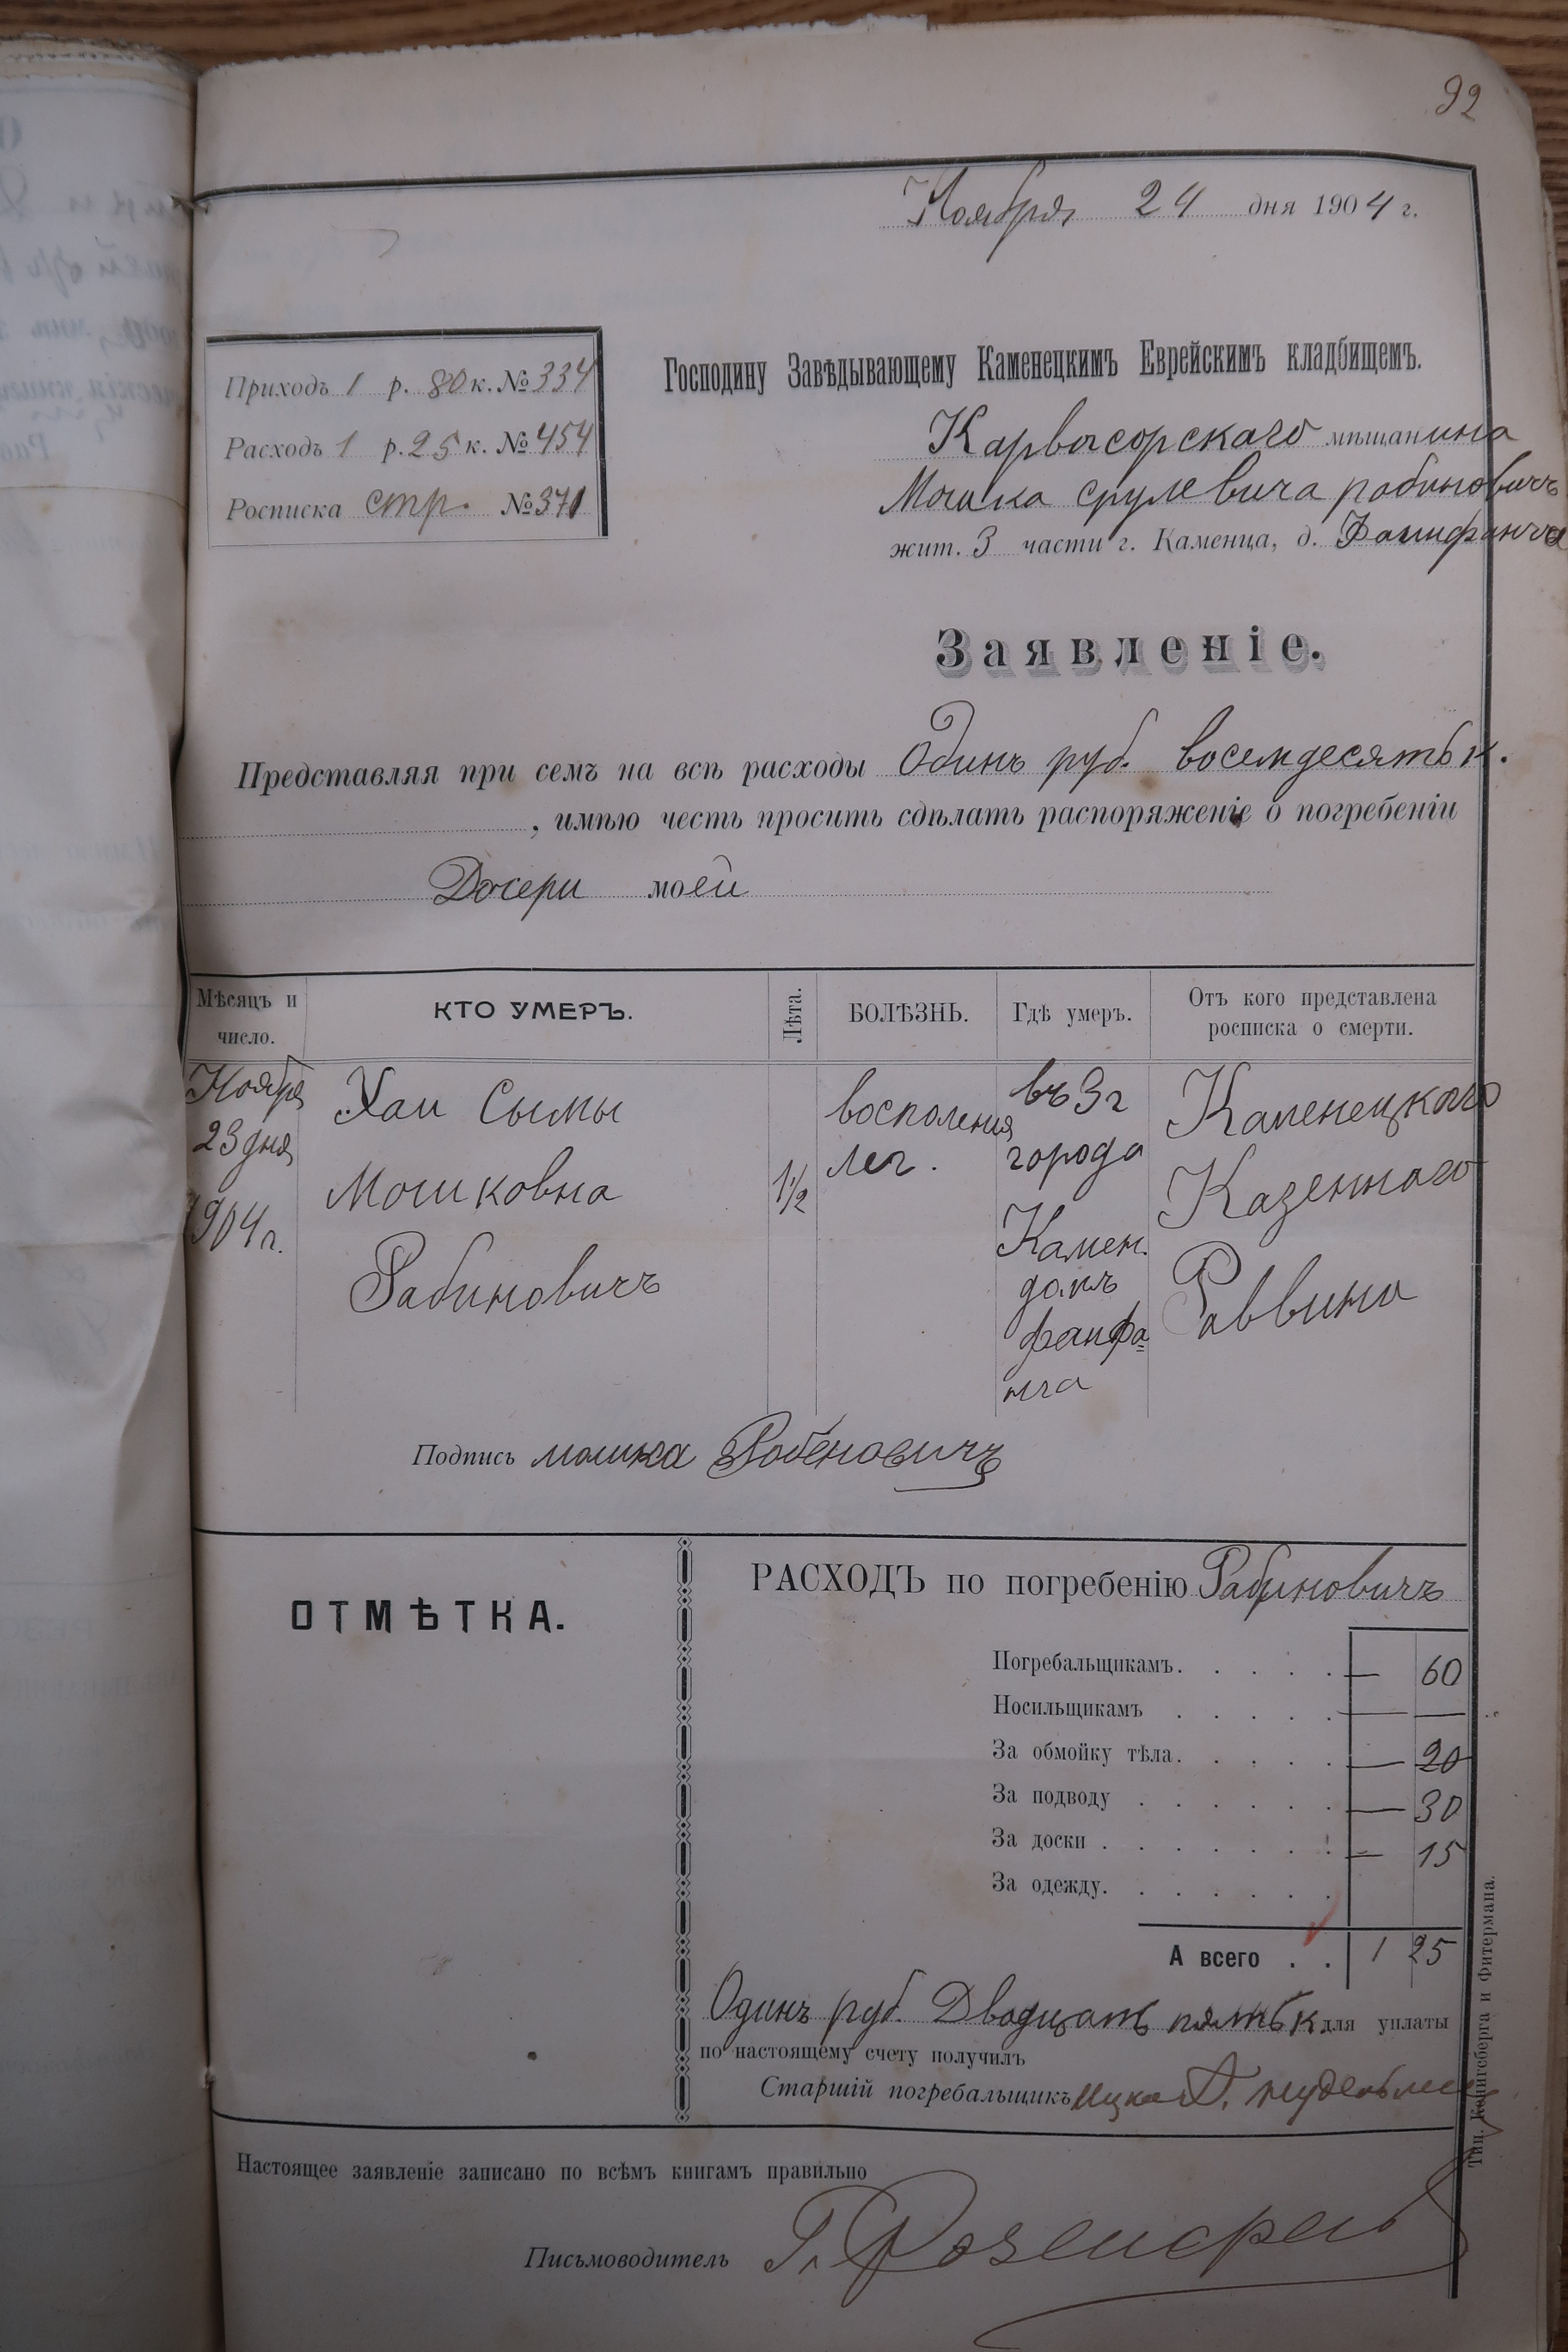 92
Ноября 24 дня 1904 г.
Приходъ 1 р. 80 к. № 334
Расходъ 1 р. 25 к. № 454
Росписка стр. № 371
Господину Завѣдывающему Каменецкимъ Еврейскимъ кладбищемъ.
Карвасорскаго мѣщанина
Мошка Срулевича Рабиновичъ
жит. 3 части г. Каменца, д.
Заявленіе.
Представляя при семъ на всѣ расходы Одинъ руб. восемдесять к.
, имѣю честь просить сдѣлать распоряженіе о погребеніи
Дочери моей
Мѣсяцъ и число.
КТО УМЕРЪ.
Лѣта.
БОЛѢЗНЬ.
Гдѣ умеръ.
Отъ кого представлена росписка о смерти.
Ноября
23 дня
1904 г.
Хаи Сымы
Мошковна
Рабиновичъ
1½
восполения
лег.
въ 3 г
города
Камен.
Каменецкаго
Казеннаго
Раввина
Подпись мошка Робеновичъ
ОТМѢТКА.
РАСХОДЪ по погребенію Рабиновичъ
Погребальщикамъ. — 60
Носильщикамъ — —
За обмойку тѣла. — 20
За подводу — 30
За доски — 15
За одежду.
А всего 1 25
Одинъ руб. Двадцать пять к. для уплаты
по настоящему счету получилъ
Старшій погребальщикъ Ицко
Настоящее заявленіе записано по всѣмъ книгамъ правильно
Письмоводитель
Тип. Кенигсберга и Фитермана.